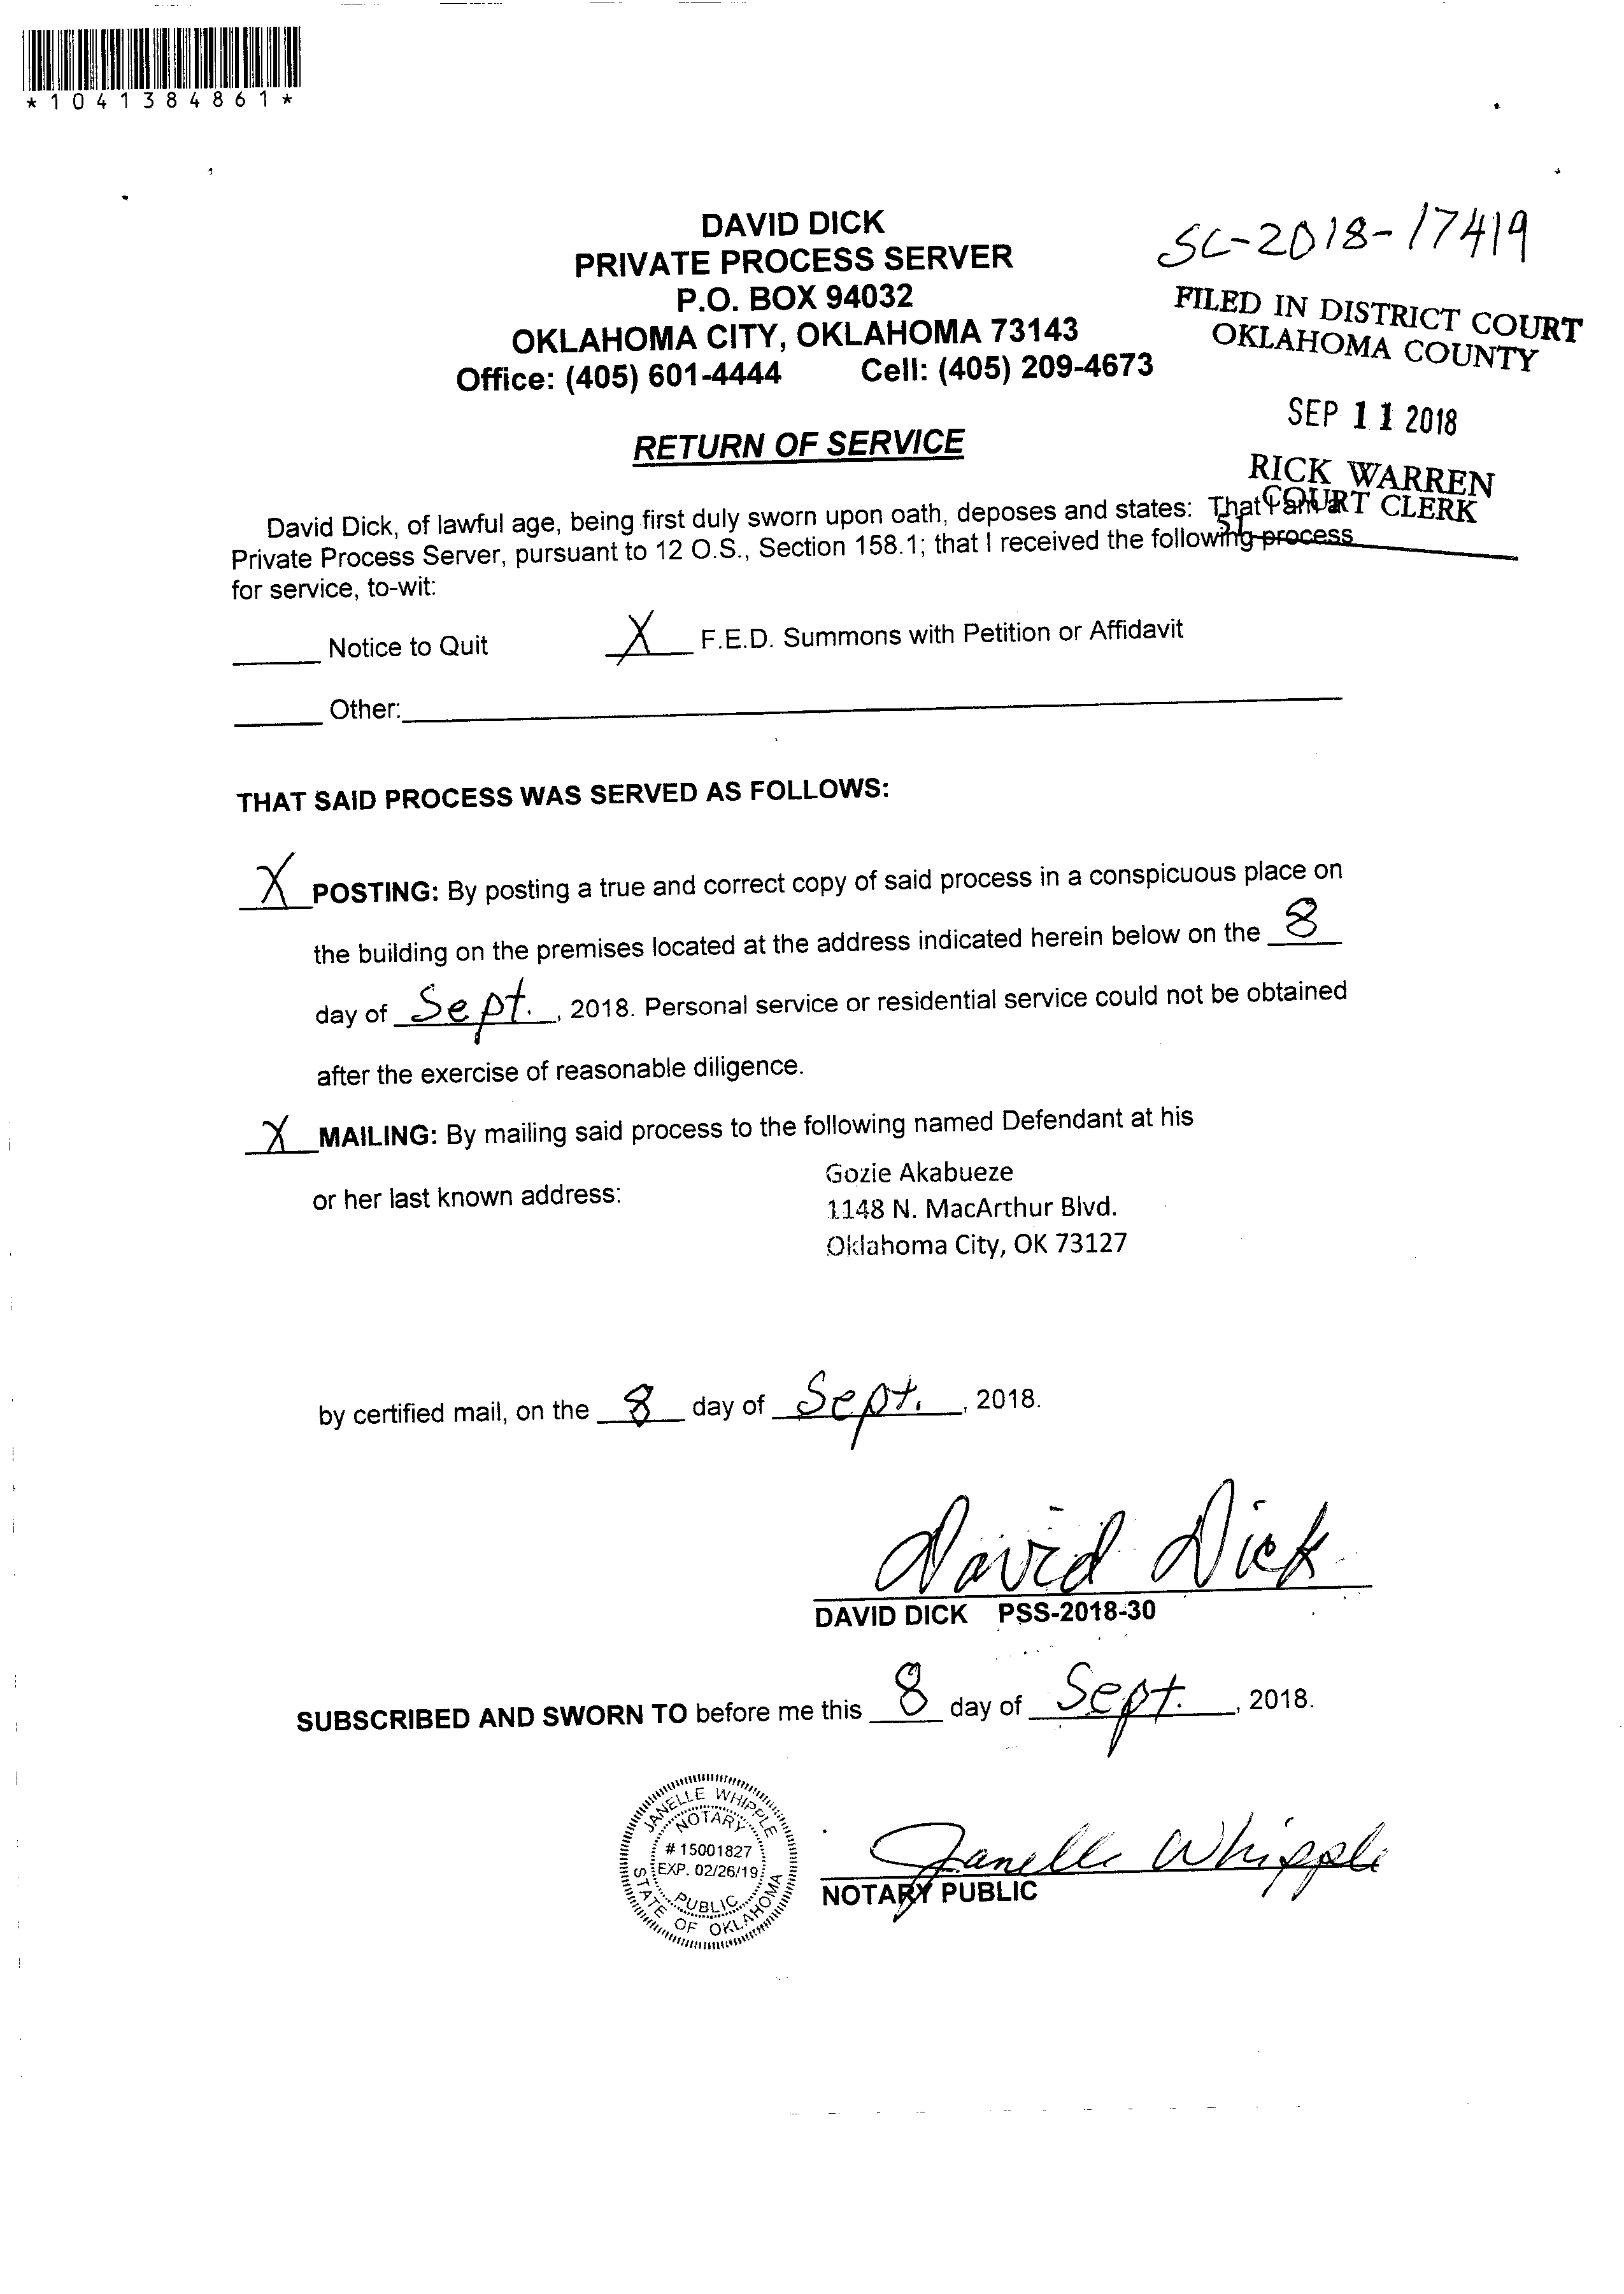 *1041384861*
DAVID DICK
PRIVATE PROCESS SERVER
P.O. BOX 94032
OKLAHOMA CITY, OKLAHOMA 73143
Office: (405) 601-4444 Cell: (405) 209-4673
SC-2018-17419
FILED IN DISTRICT COURT
OKLAHOMA COUNTY
SEP 11 2018
RICK WARREN
COURT CLERK
51
RETURN OF SERVICE
David Dick, of lawful age, being first duly sworn upon oath, deposes and states: That I am a
Private Process Server, pursuant to 12 O.S., Section 158.1; that I received the following process
for service, to-wit:
Notice to Quit X F.E.D. Summons with Petition or Affidavit
Other:
THAT SAID PROCESS WAS SERVED AS FOLLOWS:
X POSTING: By posting a true and correct copy of said process in a conspicuous place on
the building on the premises located at the address indicated herein below on the 8
day of Sept., 2018. Personal service or residential service could not be obtained
after the exercise of reasonable diligence.
X MAILING: By mailing said process to the following named Defendant at his
or her last known address:
Gozie Akabueze
1148 N. MacArthur Blvd.
Oklahoma City, OK 73127
by certified mail, on the 8 day of Sept., 2018.
David Dick
DAVID DICK PSS-2018-30
SUBSCRIBED AND SWORN TO before me this 8 day of Sept., 2018.
JANELLE WHIPPLE
NOTARY
# 15001827
EXP. 02/26/19
PUBLIC
STATE OF OKLAHOMA
Janelle Whipple
NOTARY PUBLIC